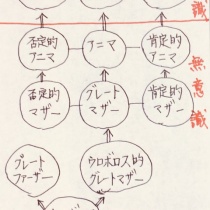 識
否定的
アニマ
アニマ
肯定的
アニマ
無意識
否定的
マザー
グレート
マザー
肯定的
マザー
グレート
ファーザー
ウロボロス的
グレートマザー